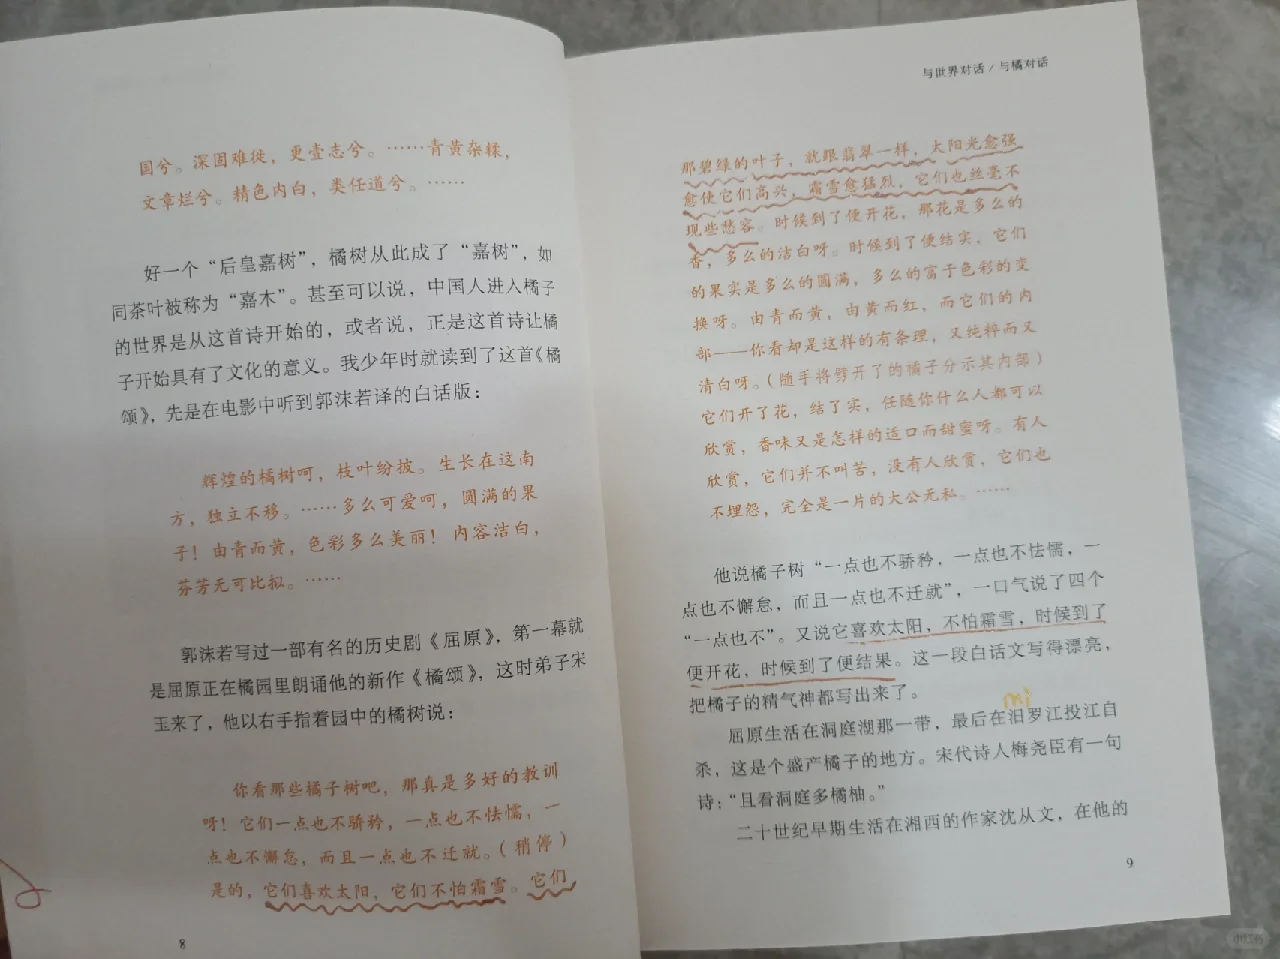 国兮。深固难徙，更壹志兮。……青黄杂糅，
文章烂兮。精色内白，类任道兮。……
好一个“后皇嘉树”，橘树从此成了“嘉树”，如
同茶叶被称为“嘉木”。甚至可以说，中国人进入橘子
的世界是从这首诗开始的，或者说，正是这首诗让橘
子开始具有了文化的意义。我少年时就读到了这首《橘
颂》，先是在电影中听到郭沫若译的白话版：
辉煌的橘树呵，枝叶纷披。生长在这南
方，独立不移。……多么可爱呵，圆满的果
子！由青而黄，色彩多么美丽！内容洁白，
芬芳无可比拟。……
郭沫若写过一部有名的历史剧《屈原》，第一幕就
是屈原正在橘园里朗诵他的新作《橘颂》，这时弟子宋
玉来了，他以右手指着园中的橘树说：
你看那些橘子树吧，那真是多好的教训
呀！它们一点也不骄矜，一点也不怯懦，一
点也不懈怠，而且一点也不迁就。（稍停）
是的，它们喜欢太阳，它们不怕霜雪。它们
8
与世界对话/与橘对话
那碧绿的叶子，就跟翡翠一样，太阳光愈强
愈使它们高兴，霜雪愈猛烈，它们也丝毫不
现些愁容。时候到了便开花，那花是多么的
香，多么的洁白呀。时候到了便结实，它们
的果实是多么的圆满，多么的富于色彩的变
换呀。由青而黄，由黄而红，而它们的内
部——你看却是这样的有条理，又纯粹而又
清白呀。（随手将劈开了的橘子分示其内部）
它们开了花，结了实，任随你什么人都可以
欣赏，香味又是怎样的适口而甜蜜呀。有人
欣赏，它们并不叫苦，没有人欣赏，它们也
不埋怨，完全是一片的大公无私。……
他说橘子树“一点也不骄矜，一点也不怯懦，一
点也不懈怠，而且一点也不迁就”，一口气说了四个
“一点也不”。又说它喜欢太阳，不怕霜雪，时候到了
便开花，时候到了便结果。这一段白话文写得漂亮，
把橘子的精气神都写出来了。
mì
屈原生活在洞庭湖那一带，最后在汨罗江投江自
杀，这是个盛产橘子的地方。宋代诗人梅尧臣有一句
诗：“且看洞庭多橘柚。”
二十世纪早期生活在湘西的作家沈从文，在他的
9
小红书